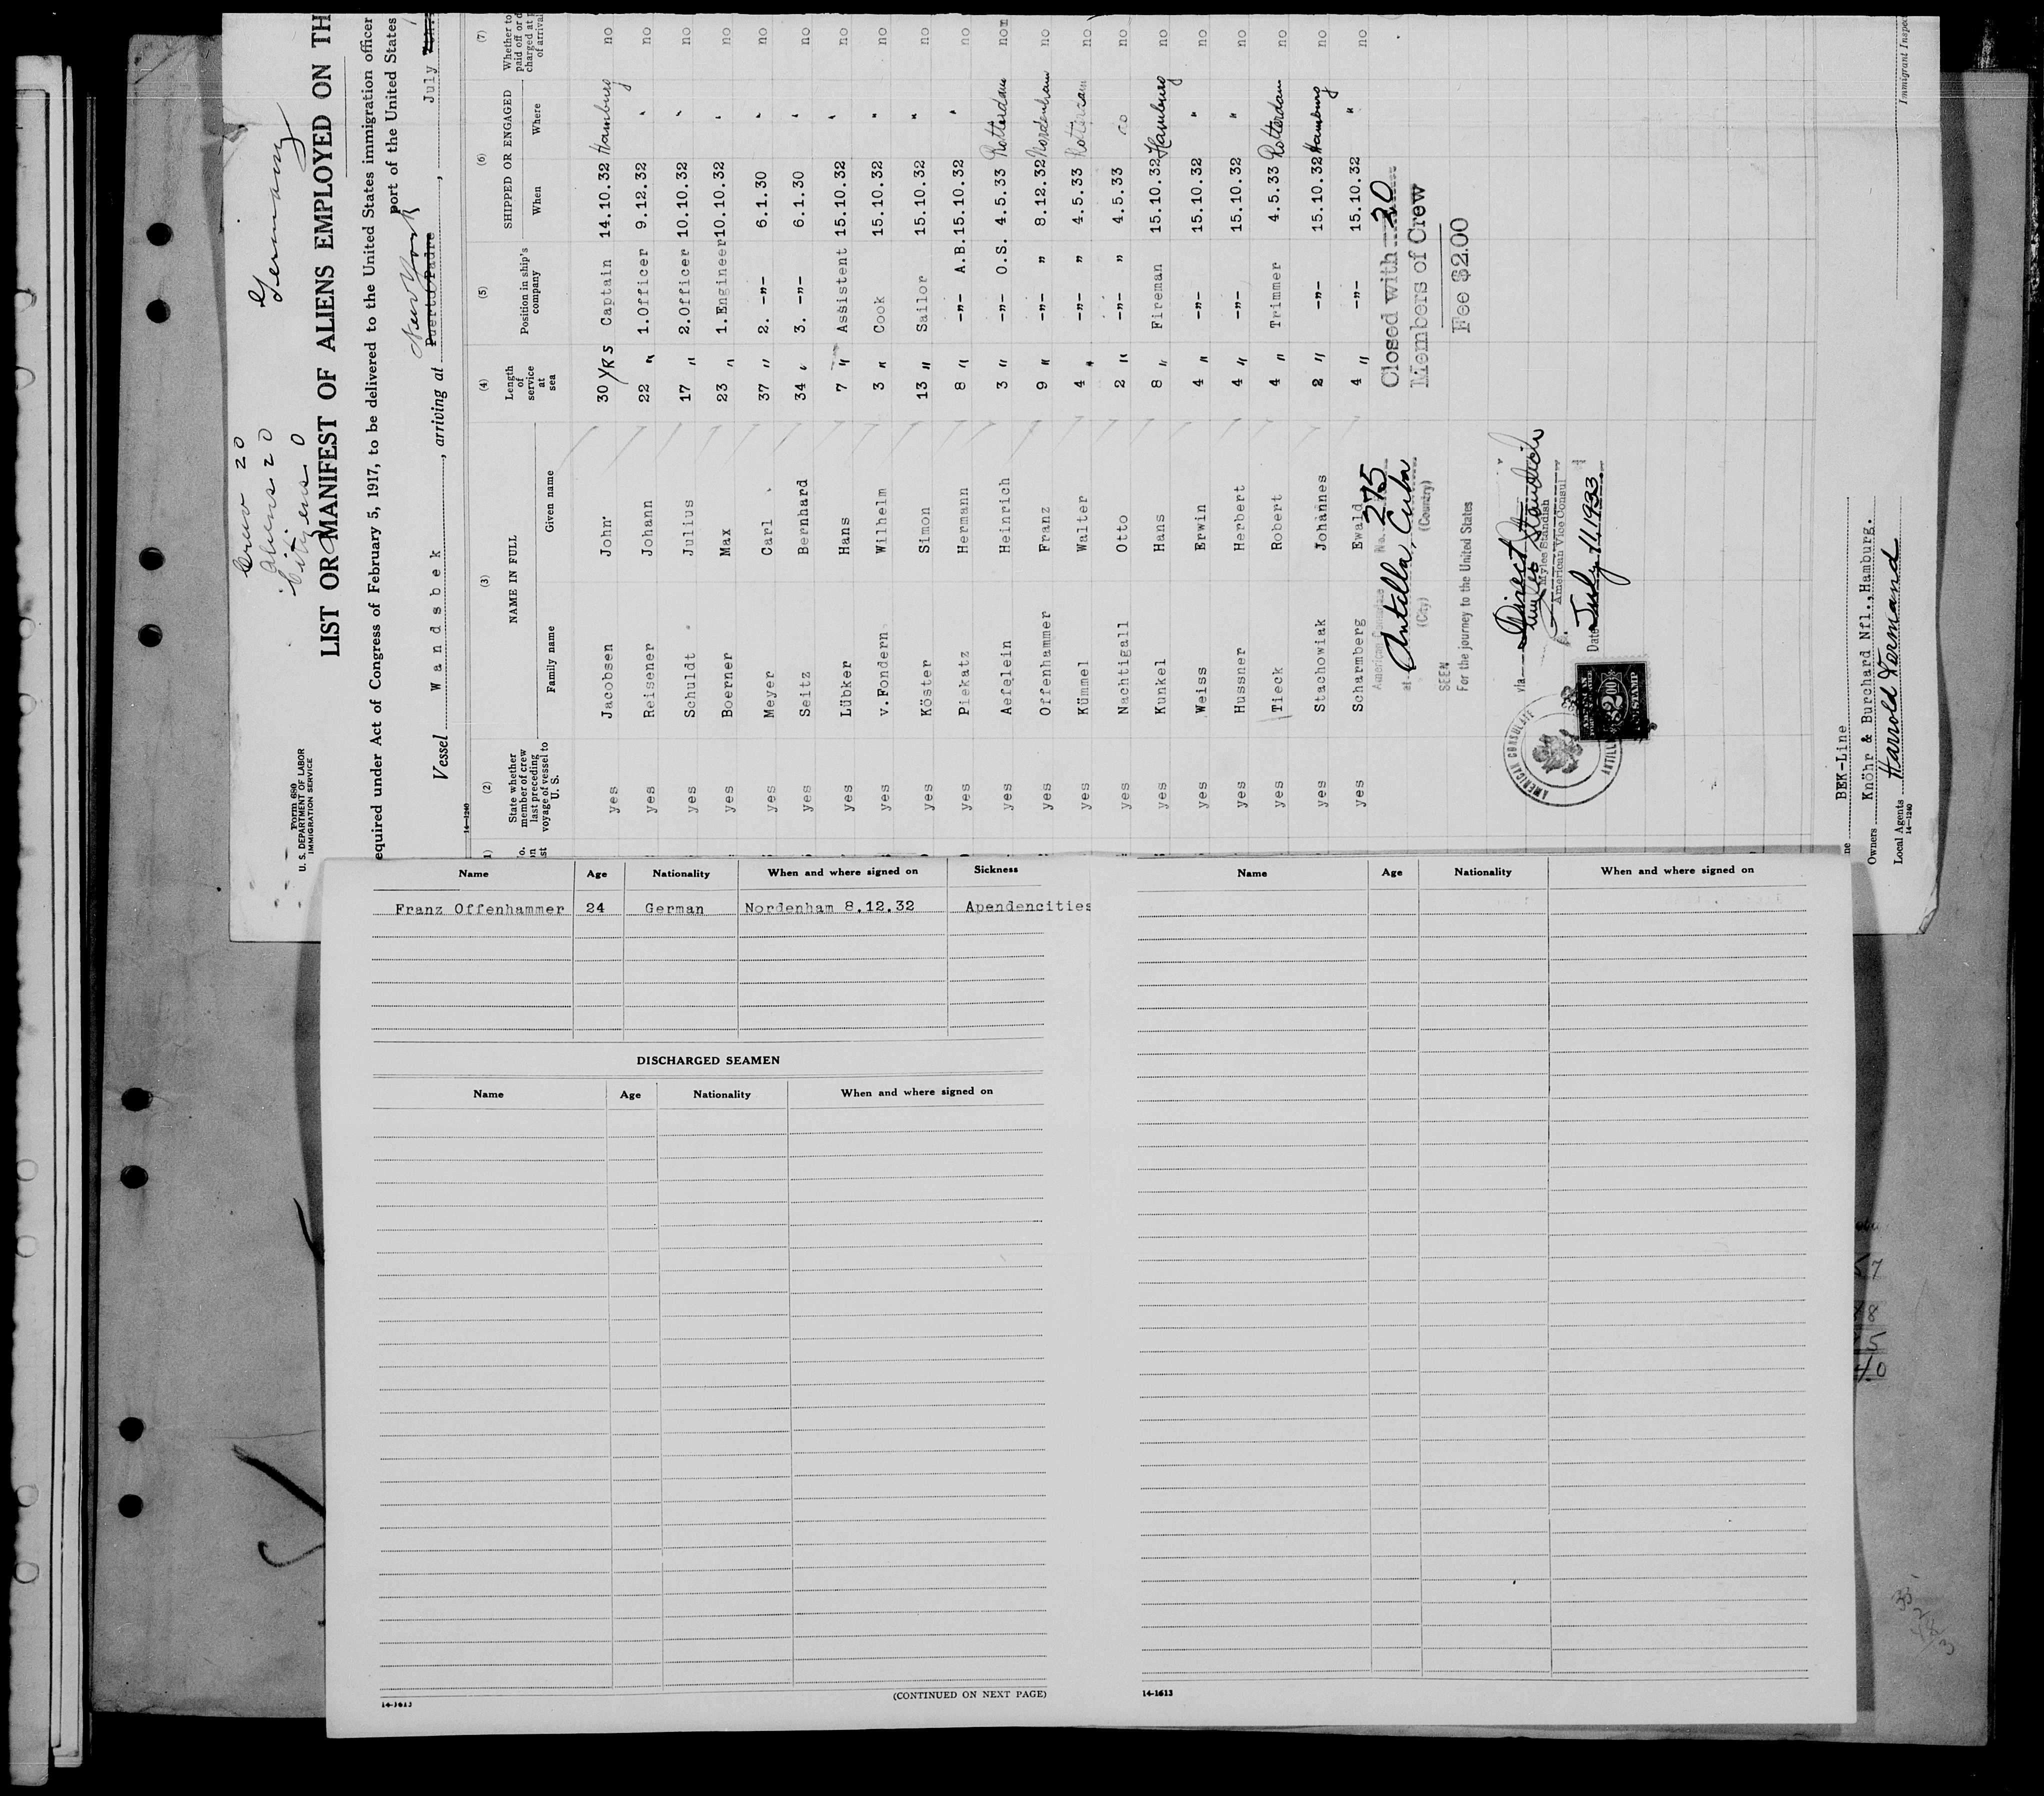 Crew 20
Aliens 20
Citizens 0
Germany
Form 680
U. S. DEPARTMENT OF LABOR
IMMIGRATION SERVICE
LIST OR MANIFEST OF ALIENS EMPLOYED ON TH
equired under Act of Congress of February 5, 1917, to be delivered to the United States immigration officer
port of the United States
New York
Vessel Wandsbek, arriving at Puerto Padre, July
14-1240
(2) (3) (4) (5) (6) (7)
State whether member of crew last preceding voyage of vessel to U. S.
NAME IN FULL
Family name Given name
Length of service at sea
Position in ship's company
SHIPPED OR ENGAGED
When Where
Whether to paid off or d charged at p of arrival
yes Jacobsen John 30 YRS Captain 14.10.32 Hamburg no
yes Reisener Johann 22 " 1.Officer 9.12.32 " no
yes Schuldt Julius 17 " 2.Officer 10.10.32 " no
yes Boerner Max 23 " 1.Engineer 10.10.32 " no
yes Meyer Carl 37 " 2. -"- 6.1.30 " no
yes Seitz Bernhard 34 " 3. -"- 6.1.30 " no
yes Lübker Hans 7 " Assistent 15.10.32 " no
yes v.Fondern Wilhelm 3 " Cook 15.10.32 " no
yes Köster Simon 13 " Sailor 15.10.32 " no
yes Piekatz Hermann 8 " -"- A.B. 15.10.32 " no
yes Aefelein Heinrich 3 " -"- O.S. 4.5.33 Rotterdam no
yes Offenhammer Franz 9 " -"- " 8.12.32 Nordenham no
yes Kümmel Walter 4 " -"- " 4.5.33 Rotterdam no
yes Nachtigall Otto 2 " -"- " 4.5.33 do no
yes Kunkel Hans 8 " Fireman 15.10.32 Hamburg no
yes Weiss Erwin 4 " -"- 15.10.32 " no
yes Hussner Herbert 4 " -"- 15.10.32 " no
yes Tieck Robert 4 " Trimmer 4.5.33 Rotterdam no
yes Stachowiak Johannes 2 " -"- 15.10.32 Hamburg no
yes Scharmberg Ewald 4 " -"- 15.10.32 " no
American Consulate No. 275
at Antilla, Cuba
(City) (Country)
SEEN
For the journey to the United States
via Direct
Myles Standish
Myles Standish
American Vice Consul
Date July 11, 1933
Closed with 20
Members of Crew
Fee $2.00
AMERICAN CONSULATE
$2.00
BEK-Line
Owners Knöhr & Burchard Nfl., Hamburg.
Local Agents
14-1240
Immigrant Inspec
Name Age Nationality When and where signed on Sickness
Franz Offenhammer 24 German Nordenham 8.12.32 Apendencities
DISCHARGED SEAMEN
Name Age Nationality When and where signed on
(CONTINUED ON NEXT PAGE)
14-1613
Name Age Nationality When and where signed on
14-1613